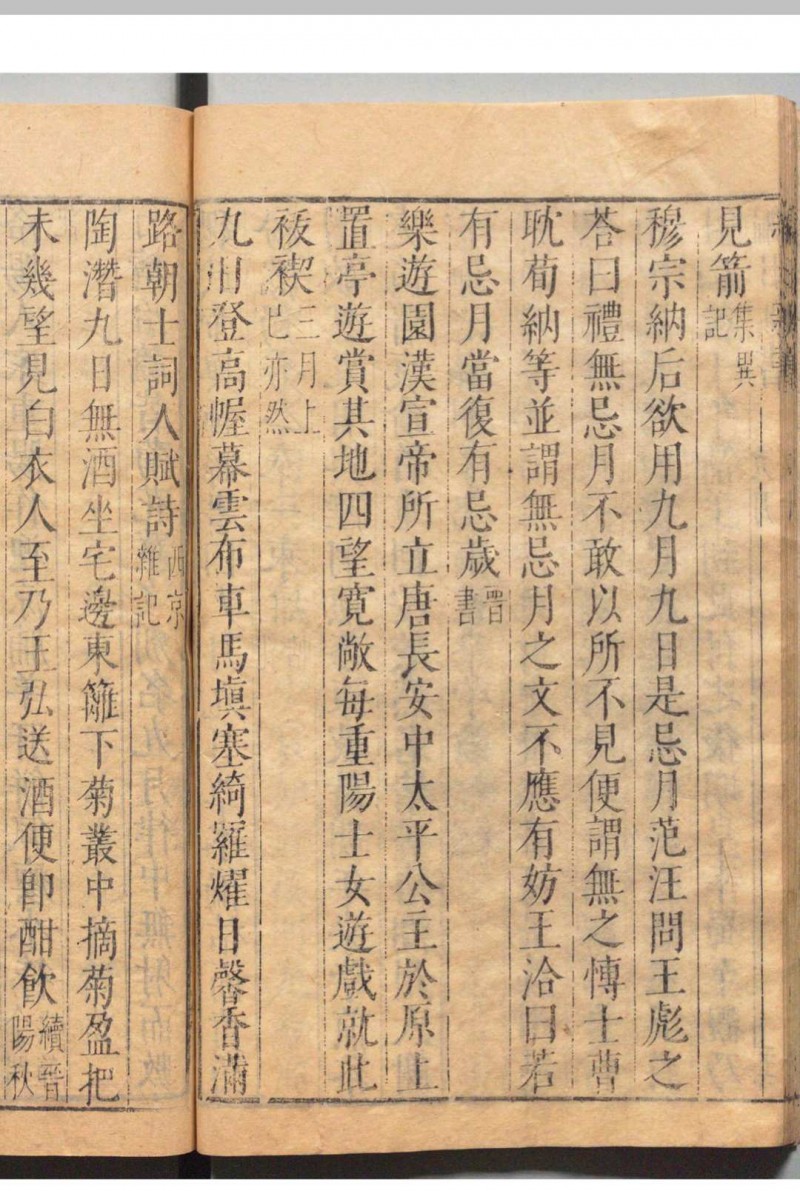 見箭集異記
穆宗納后欲用九月九日是忌月范汪問王彪之
荅曰禮無忌月不敢以所不見便謂無之愽士曹
耽荀納等並謂無忌月之文不應有妨王洽曰若
有忌月當復有忌歲晋書
樂遊園漢宣帝所立唐長安中太平公主於原上
置亭遊賞其地四望寛敞每重陽士女遊戲就此
祓禊三月上巳亦然
九日登高幄幕雲布車馬塡塞綺羅燿日馨香滿
路朝士詞人賦詩西京雜記
陶潛九日無酒坐宅邊東籬下菊叢中摘菊盈把
未幾望見白衣人至乃王弘送酒便卽酣飮續晉陽秋